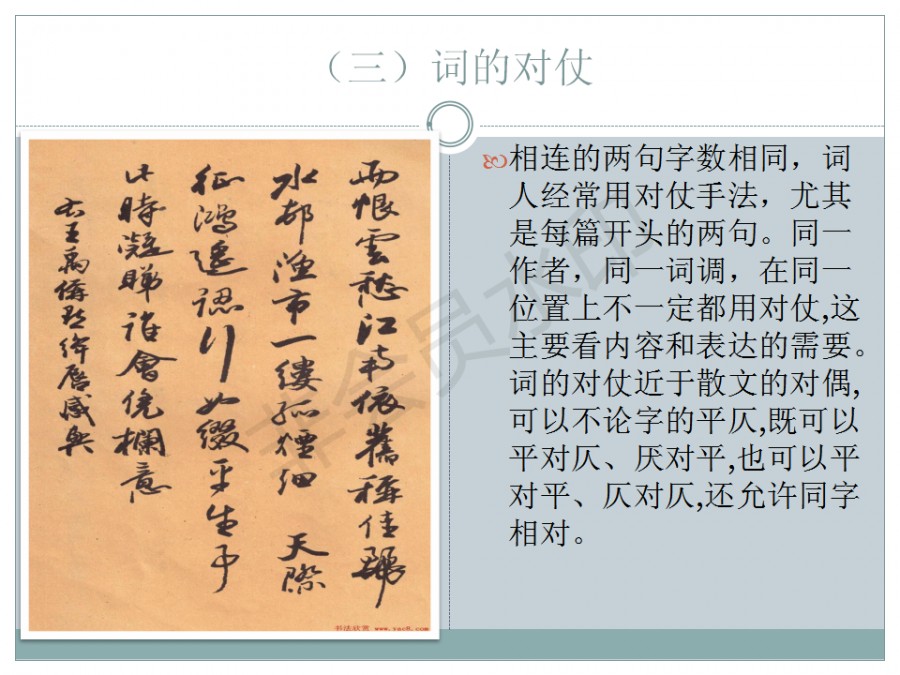 （三）词的对仗
雨恨雲愁江南依舊稱佳麗
水邨漁市一縷孤煙細 天際
征鴻遙認行如綴平生事
此時凝睇誰會憑欄意
右王禹偁點絳唇感興
书法欣赏 www.yac8.com
相连的两句字数相同，词
人经常用对仗手法，尤其
是每篇开头的两句。同一
作者，同一词调，在同一
位置上不一定都用对仗,这
主要看内容和表达的需要。
词的对仗近于散文的对偶,
可以不论字的平仄,既可以
平对仄、厌对平,也可以平
对平、仄对仄,还允许同字
相对。
非会员水印